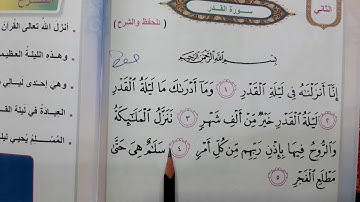 الثاني
سورة القدر
(للحفظ والشرح)
بسم الله الرحمن الرحيم
إِنَّا أَنزَلْنَٰهُ فِي لَيْلَةِ ٱلْقَدْرِ ١ وَمَآ أَدْرَىٰكَ مَا لَيْلَةُ ٱلْقَدْرِ
٢ لَيْلَةُ ٱلْقَدْرِ خَيْرٌ مِّنْ أَلْفِ شَهْرٍ ٣ تَنَزَّلُ ٱلْمَلَٰٓئِكَةُ
وَٱلرُّوحُ فِيهَا بِإِذْنِ رَبِّهِم مِّن كُلِّ أَمْرٍ ٤ سَلَٰمٌ هِيَ حَتَّىٰ
مَطْلَعِ ٱلْفَجْرِ ٥
أنزل الله تعالى القرآن
وهذه الليلة العظيم
وهي إحدى ليالي
العبادة في ليلة الق
المسلم يحيي ليلة